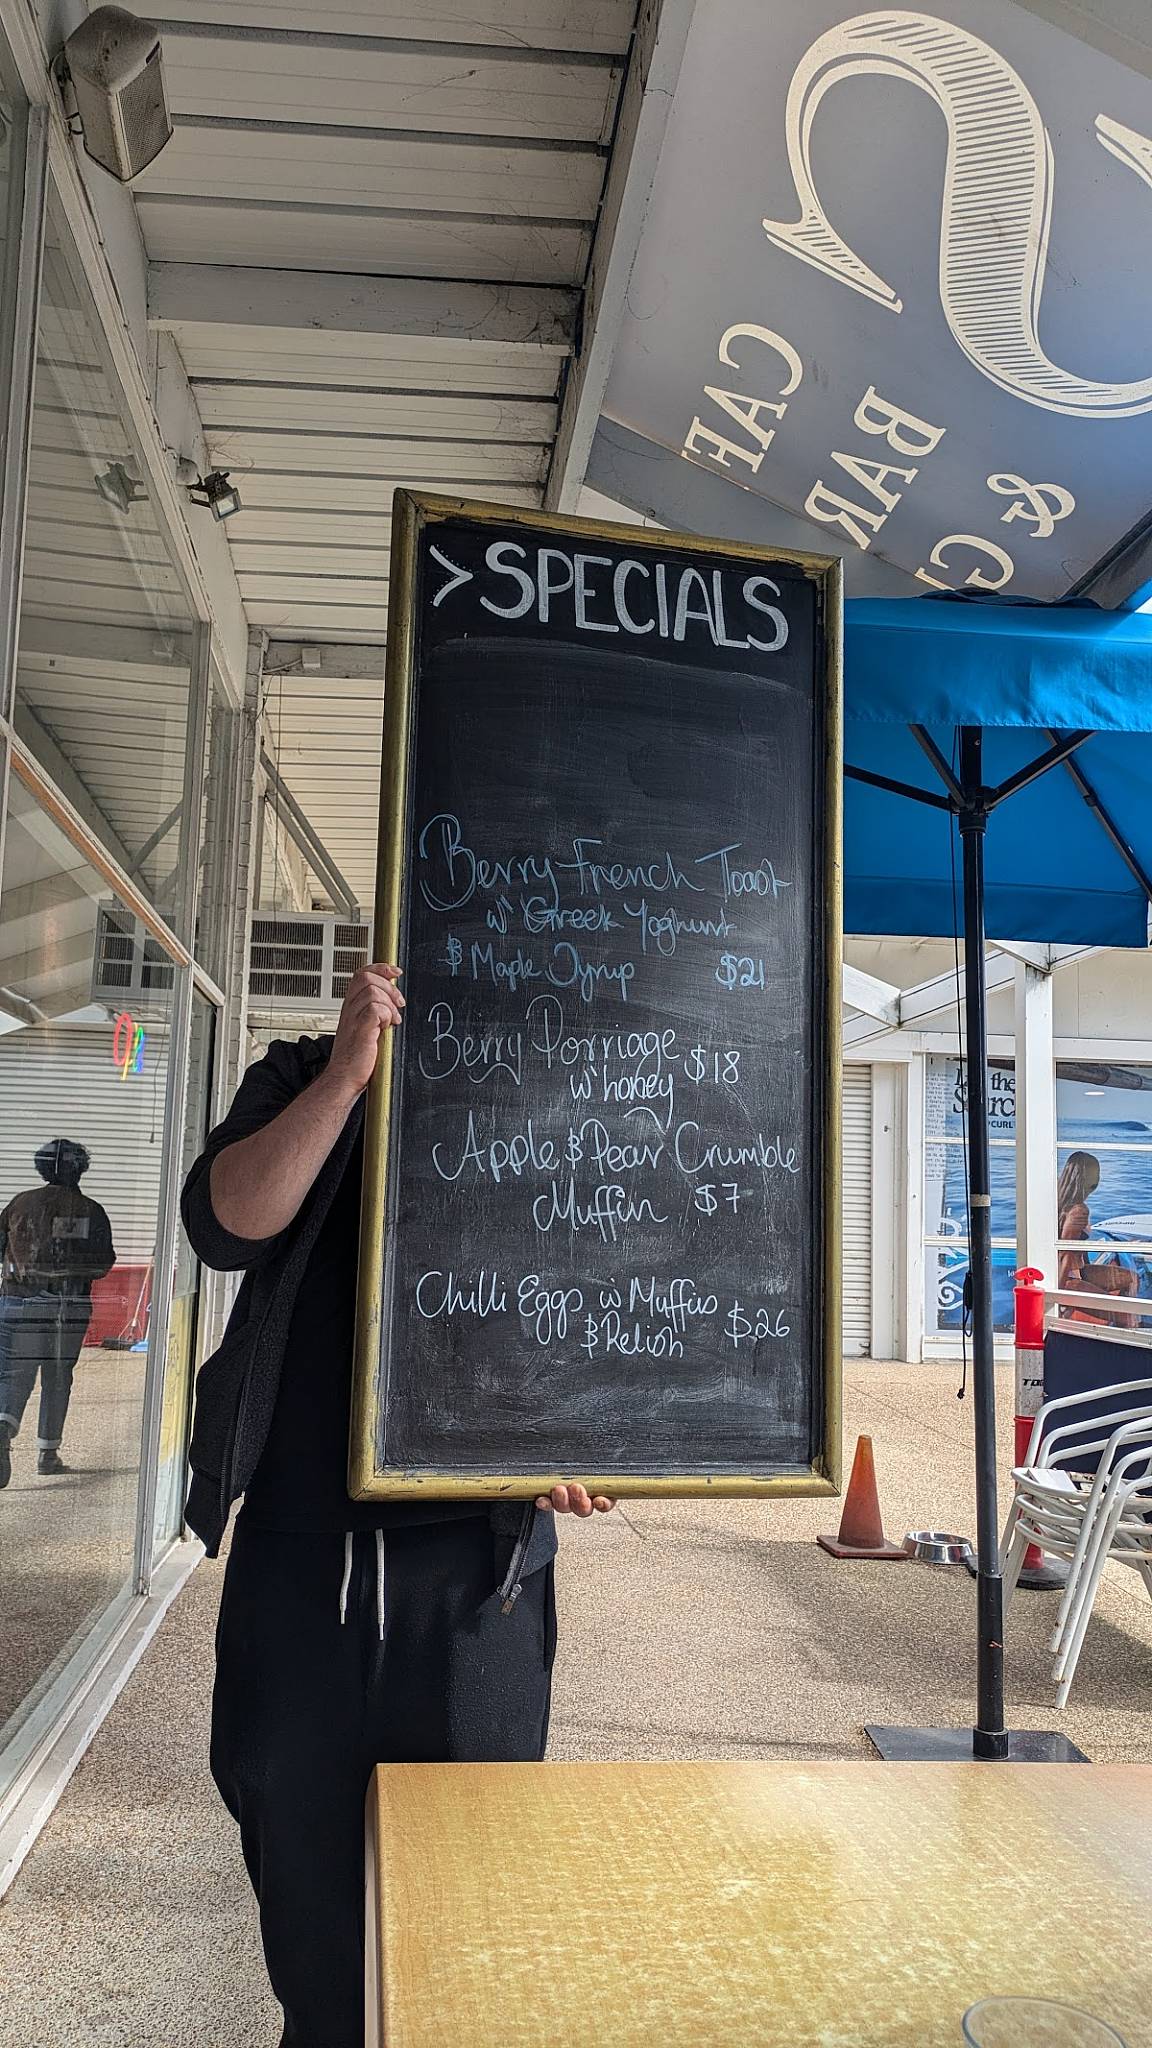 > SPECIALS
Berry French Toast
w' Greek Yoghurt
& Maple Syrup $21
Berry Porriage $18
w' honey
Apple & Pear Crumble
Muffin $7
Chilli Eggs w Muffins $26
& Relish
CAFE
BAR
&
the
Search